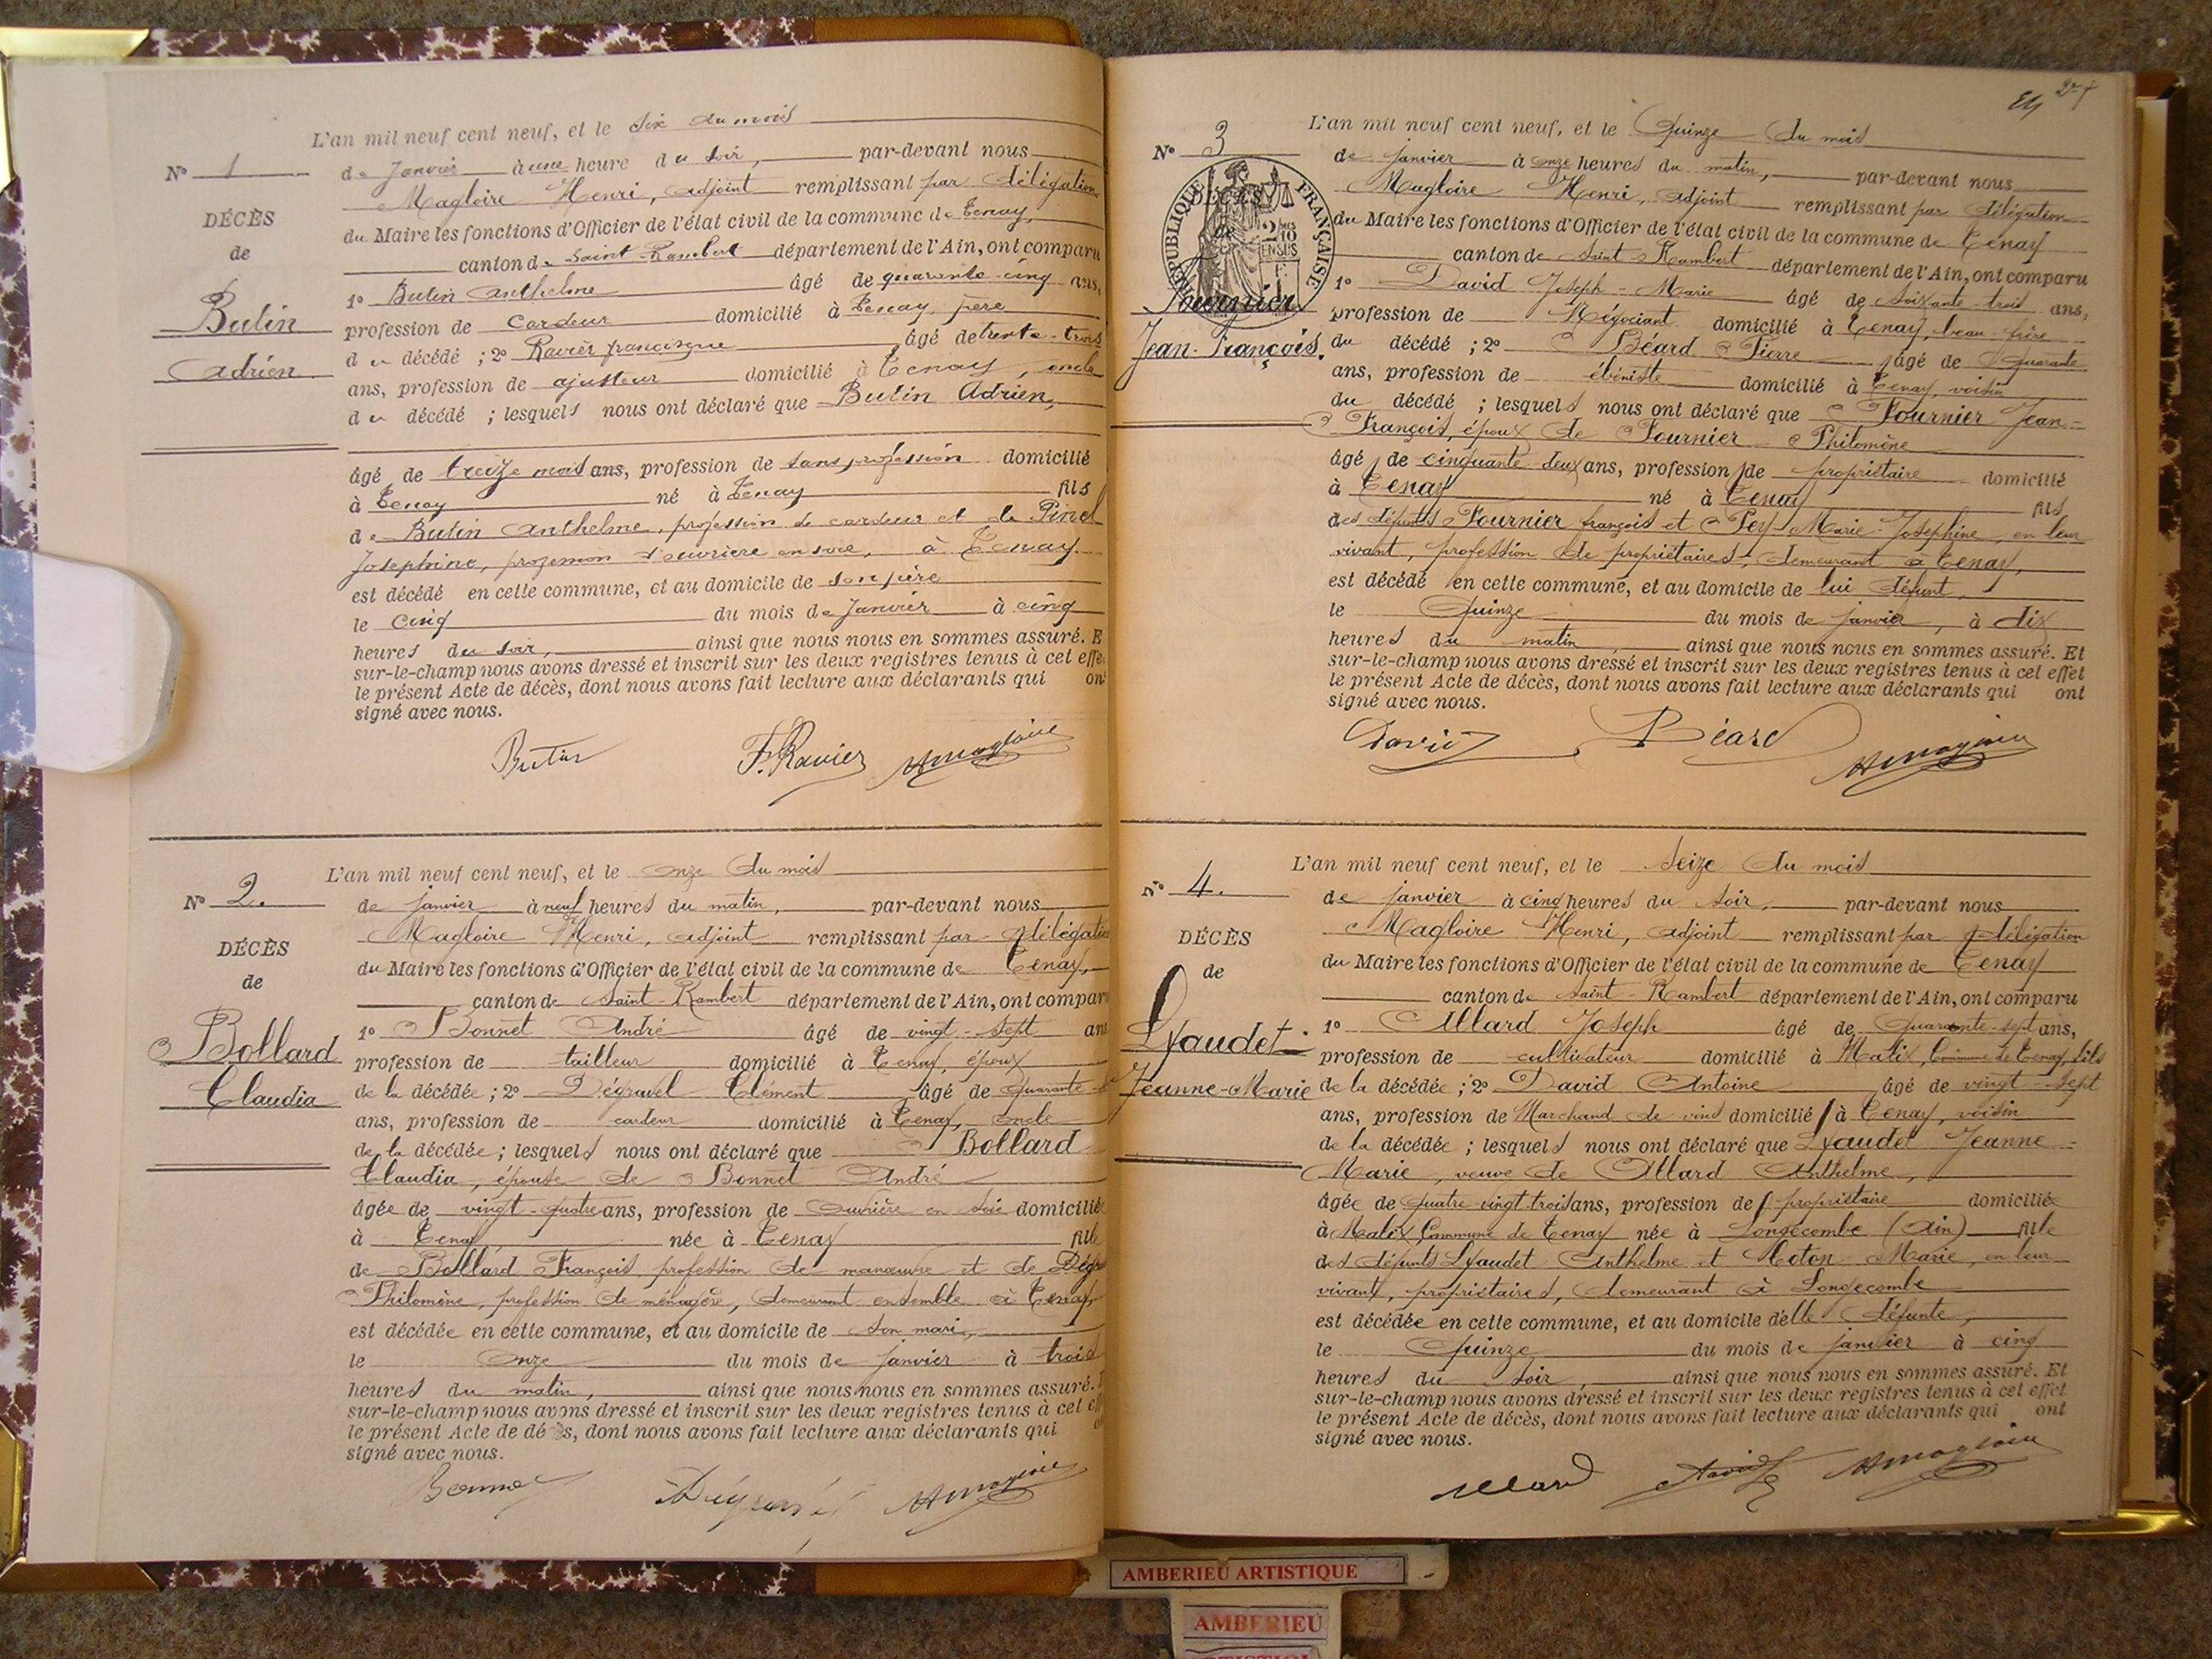 L'an mil neuf cent neuf, et le six du mois
N° 1
de Janvier à une heure du soir, par-devant nous
Magloire Henri, adjoint remplissant par délégation
DÉCÈS
du Maire les fonctions d'Officier de l'état civil de la commune de Tenay,
de
canton de Saint-Rambert département de l'Ain, ont comparu
1° Butin Anthelme âgé de quarante-cinq ans,
Butin
profession de cardeur domicilié à Tenay, père
du décédé ; 2° Ravier françisque âgé de trente-trois
Adrien
ans, profession de ajusteur domicilié à Tenay, oncle
du décédé ; lesquels nous ont déclaré que Butin Adrien,
âgé de treize mois ans, profession de sans profession domicilié
à Tenay né à Tenay fils
de Butin Anthelme, profession de cardeur et de Pinel
Josephine, profession d'ouvrière en soie, à Tenay
est décédé en cette commune, et au domicile de son père
le cinq du mois de Janvier à cinq
heures du soir, ainsi que nous nous en sommes assuré. E
sur-le-champ nous avons dressé et inscrit sur les deux registres tenus à cet effe
le présent Acte de décès, dont nous avons fait lecture aux déclarants qui ont
signé avec nous.
Butin F. Ravier H Magloire
L'an mil neuf cent neuf, et le onze du mois
N° 2.
de janvier à neuf heures du matin, par-devant nous
Magloire Henri, adjoint remplissant par délégation
DÉCÈS
du Maire les fonctions d'Officier de l'état civil de la commune de Tenay,
de
canton de Saint-Rambert département de l'Ain, ont comparu
1° Bonnet André âgé de vingt-sept ans
Bollard
profession de tailleur domicilié à Tenay, époux
Claudia
de la décédée ; 2° Dégravel Clément âgé de quarante
ans, profession de cardeur domicilié à Tenay, oncle
de la décédée ; lesquels nous ont déclaré que Bollard
Claudia, épouse de Bonnet André
âgée de vingt-quatre ans, profession de ouvrière en soie domiciliée
à Tenay née à Tenay fille
de Bollard François, profession de manœuvre et de Dégr
Philomène, profession de ménagère, demeurant ensemble à Tenay,
est décédée en cette commune, et au domicile de son mari,
le onze du mois de janvier à trois
heures du matin, ainsi que nous nous en sommes assuré.
sur-le-champ nous avons dressé et inscrit sur les deux registres tenus à cet eff
le présent Acte de décès, dont nous avons fait lecture aux déclarants qui
signé avec nous.
Bonnet H Magloire
L'an mil neuf cent neuf, et le Quinze du mois
N° 3
de janvier à onze heures du matin, par-devant nous
Magloire Henri, adjoint remplissant par délégation
DÉCÈS
RÉPUBLIQUE FRANÇAISE
2/10 EN SUS
du Maire les fonctions d'Officier de l'état civil de la commune de Tenay
de
canton de Saint-Rambert département de l'Ain, ont comparu
1° David Joseph-Marie âgé de soixante-trois ans,
Fournier
profession de Négociant domicilié à Tenay, beau-frère
Jean-François.
du décédé ; 2° Béard Pierre âgé de Quarante
ans, profession de ébéniste domicilié à Tenay, voisin
du décédé ; lesquels nous ont déclaré que Fournier Jean-
François, époux de Fournier Philomène
âgé de cinquante-deux ans, profession de propriétaire domicilié
à Tenay né à Tenay fils
des défunts Fournier françois et Pey Marie-Josephine, en leur
vivant, profession de propriétaires, demeurant à Tenay,
est décédé en cette commune, et au domicile de lui défunt,
le Quinze du mois de janvier, à dix
heures du matin, ainsi que nous nous en sommes assuré. Et
sur-le-champ nous avons dressé et inscrit sur les deux registres tenus à cet effet
le présent Acte de décès, dont nous avons fait lecture aux déclarants qui ont
signé avec nous.
David Béard H Magloire
L'an mil neuf cent neuf, et le Seize du mois
N° 4.
de janvier à cinq heures du soir, par-devant nous
Magloire Henri, adjoint remplissant par délégation
DÉCÈS
du Maire les fonctions d'Officier de l'état civil de la commune de Tenay
de
canton de Saint-Rambert département de l'Ain, ont comparu
1° Allard Joseph âgé de Quarante-sept ans,
Lyaudet
profession de cultivateur domicilié à Malix, Commune de Tenay, fils
Jeanne-Marie
de la décédée ; 2° David Antoine âgé de vingt-sept
ans, profession de Marchand de vins domicilié à Tenay, voisin
de la décédée ; lesquels nous ont déclaré que Lyaudet Jeanne-
Marie, veuve de Allard Anthelme,
âgée de quatre-vingt-trois ans, profession de propriétaire domiciliée
à Malix Commune de Tenay née à Longecombe (Ain) fille
des défunts Lyaudet Anthelme et Moton Marie, en leur
vivant, propriétaires, demeurant à Longecombe
est décédée en cette commune, et au domicile d'elle défunte,
le Quinze du mois de janvier à cinq
heures du soir, ainsi que nous nous en sommes assuré. Et
sur-le-champ nous avons dressé et inscrit sur les deux registres tenus à cet effet
le présent Acte de décès, dont nous avons fait lecture aux déclarants qui ont
signé avec nous.
Allard David H Magloire
AMBERIEU ARTISTIQUE
AMBERIEU